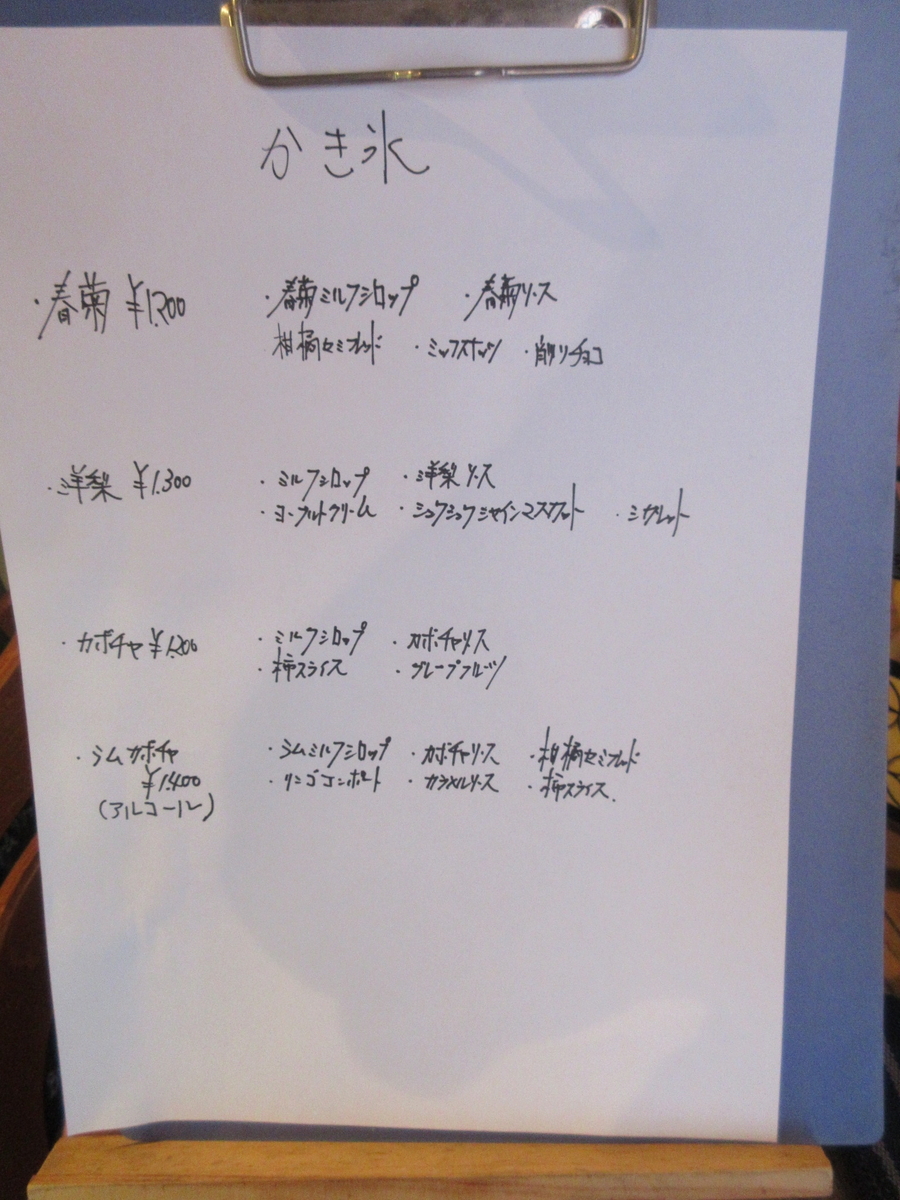 かき氷
・春菊 ¥1,200 ・春菊ミルクシロップ ・春菊ソース
柑橘セミフレッド ・ミックスナッツ ・削りチョコ
・洋梨 ¥1,300 ・ミルクシロップ ・洋梨ソース
・ヨーグルトクリーム ・シュワシュワシャインマスカット ・シガレット
・カボチャ ¥1,200 ・ミルクシロップ ・カボチャソース
・柿スライス ・グレープフルーツ
・ラムカボチャ ・ラムミルクシロップ ・カボチャソース ・柑橘セミフレッド
¥1,400 ・リンゴコンポート ・カラメルソース ・柿スライス
(アルコール)